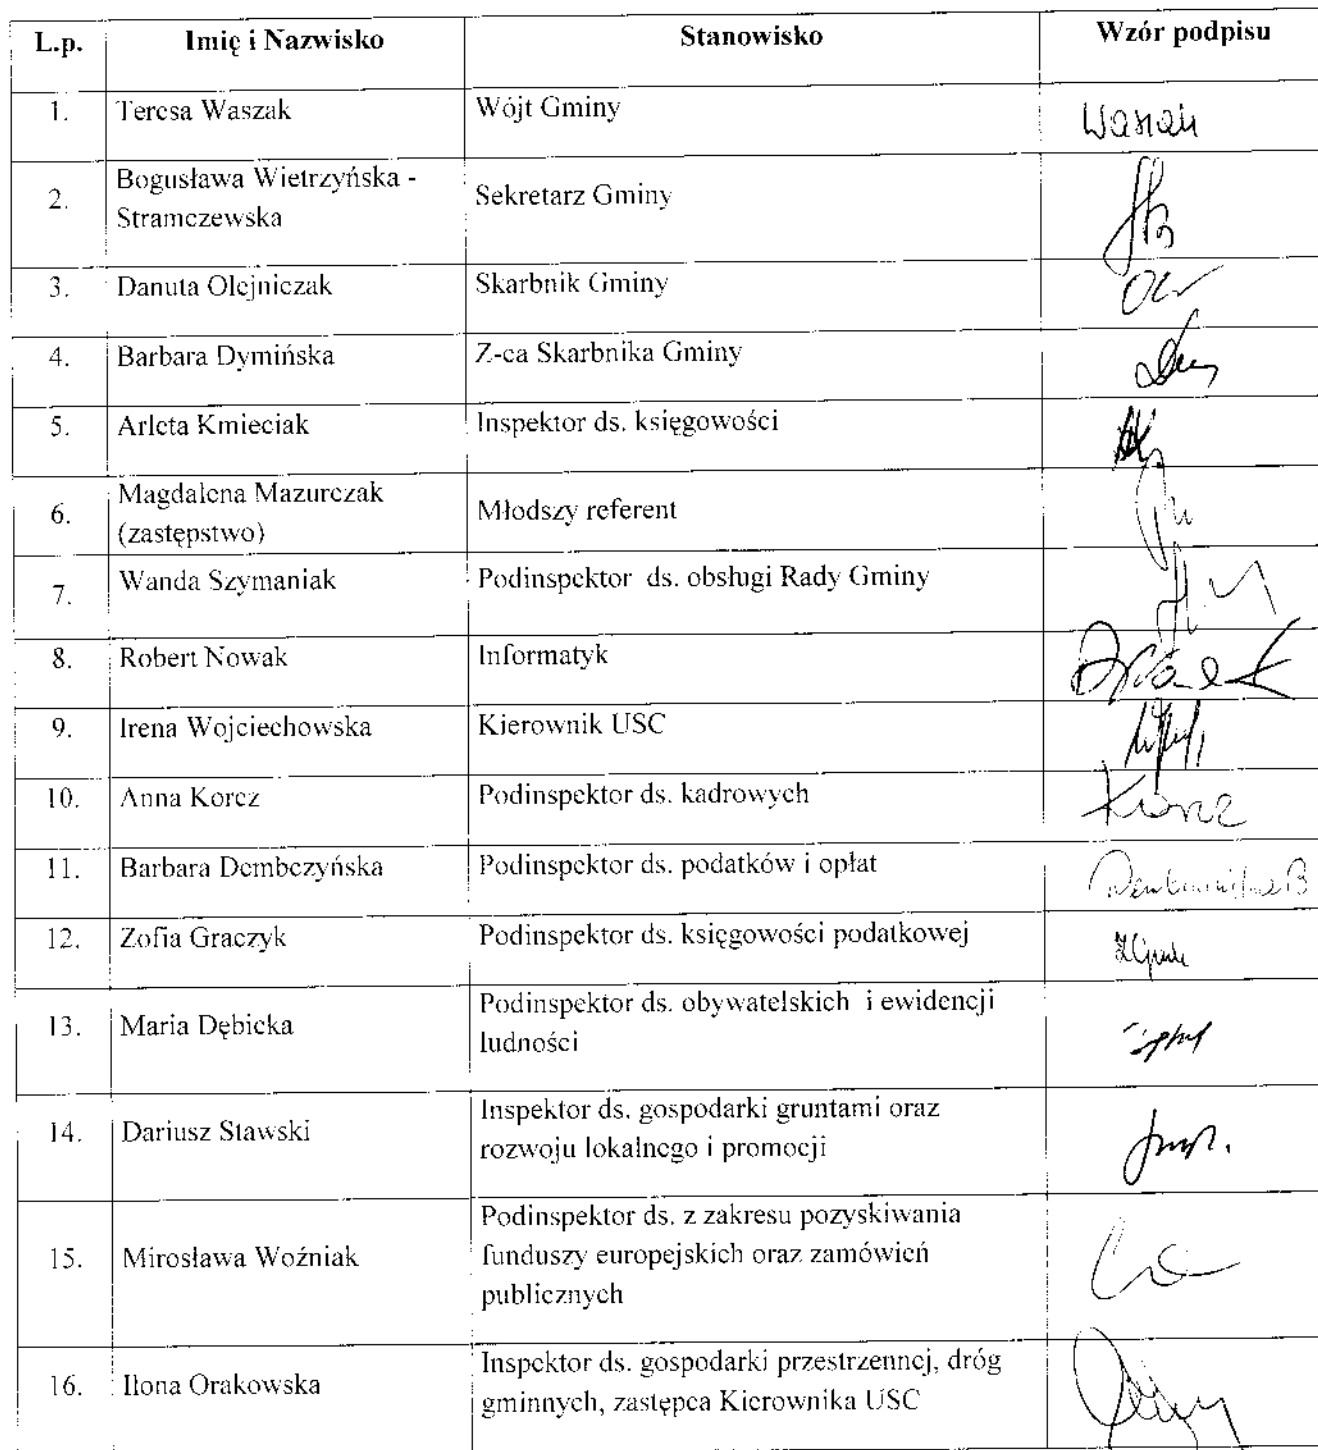 L.p. Imię i Nazwisko Stanowisko Wzór podpisu
1. Teresa Waszak Wójt Gminy Waszak
2. Bogusława Wietrzyńska -
Stramczewska Sekretarz Gminy
3. Danuta Olejniczak Skarbnik Gminy
4. Barbara Dymińska Z-ca Skarbnika Gminy
5. Arleta Kmieciak Inspektor ds. księgowości
6. Magdalena Mazurczak
(zastępstwo) Młodszy referent
7. Wanda Szymaniak Podinspektor ds. obsługi Rady Gminy
8. Robert Nowak Informatyk
9. Irena Wojciechowska Kierownik USC
10. Anna Korcz Podinspektor ds. kadrowych Korcz
11. Barbara Dembczyńska Podinspektor ds. podatków i opłat
12. Zofia Graczyk Podinspektor ds. księgowości podatkowej
13. Maria Dębicka Podinspektor ds. obywatelskich i ewidencji
ludności
14. Dariusz Stawski Inspektor ds. gospodarki gruntami oraz
rozwoju lokalnego i promocji
15. Mirosława Woźniak Podinspektor ds. z zakresu pozyskiwania
funduszy europejskich oraz zamówień
publicznych
16. Ilona Orakowska Inspektor ds. gospodarki przestrzennej, dróg
gminnych, zastępca Kierownika USC